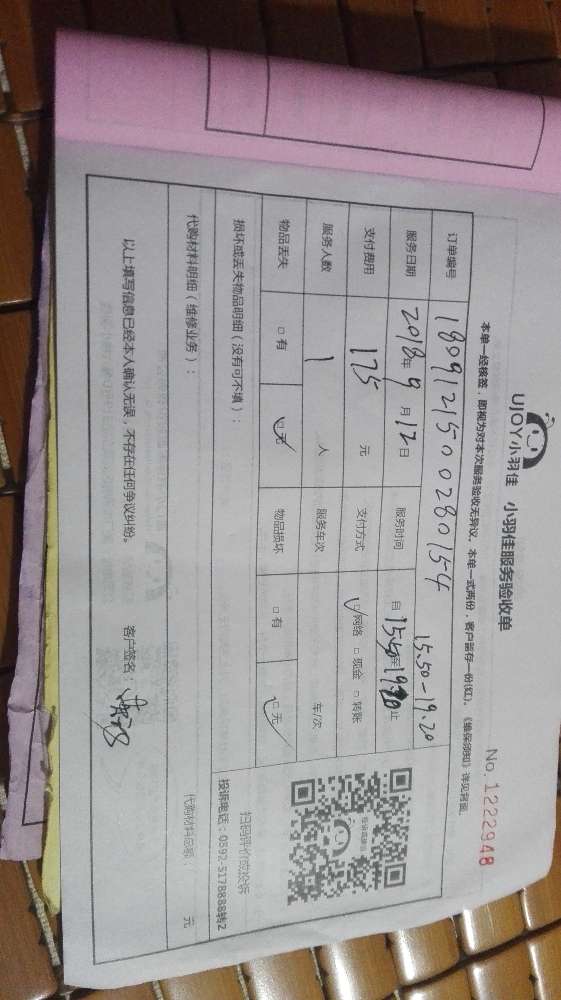 UJOY小羽佳 小羽佳服务验收单
No. 1222948
本单一经核签，即视为对本次服务验收无异议。本单一式两份，客户留存一份(红)。《维保须知》详见背面。
订单编号 1809121500280154 15:50-19:20
服务日期 2018年9月12日 服务时间 自15:50至19:20止
支付费用 175 元 支付方式 ☑网络 □现金 □转账
服务人数 1 人 服务车次 车/次
物品丢失 □有 ☑无 物品损坏 □有 ☑无
扫码评价或投诉
投诉电话：0592-5178888转2
损坏或丢失物品明细（没有可不填）：
代购材料明细（维修业务）： 代购材料总额： 元
以上填写信息已经本人确认无误，不存在任何争议纠纷。 客户签名：